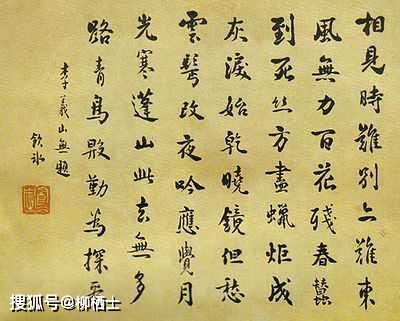 相見時難別亦難東
風無力百花殘春蠶
到死丝方盡蠟炬成
灰淚始乾曉鏡但愁
雲鬢改夜吟應覺月
光寒蓬山此去無多
路青鳥殷勤為探看
李義山無題
飲冰
搜狐号@柳栖士